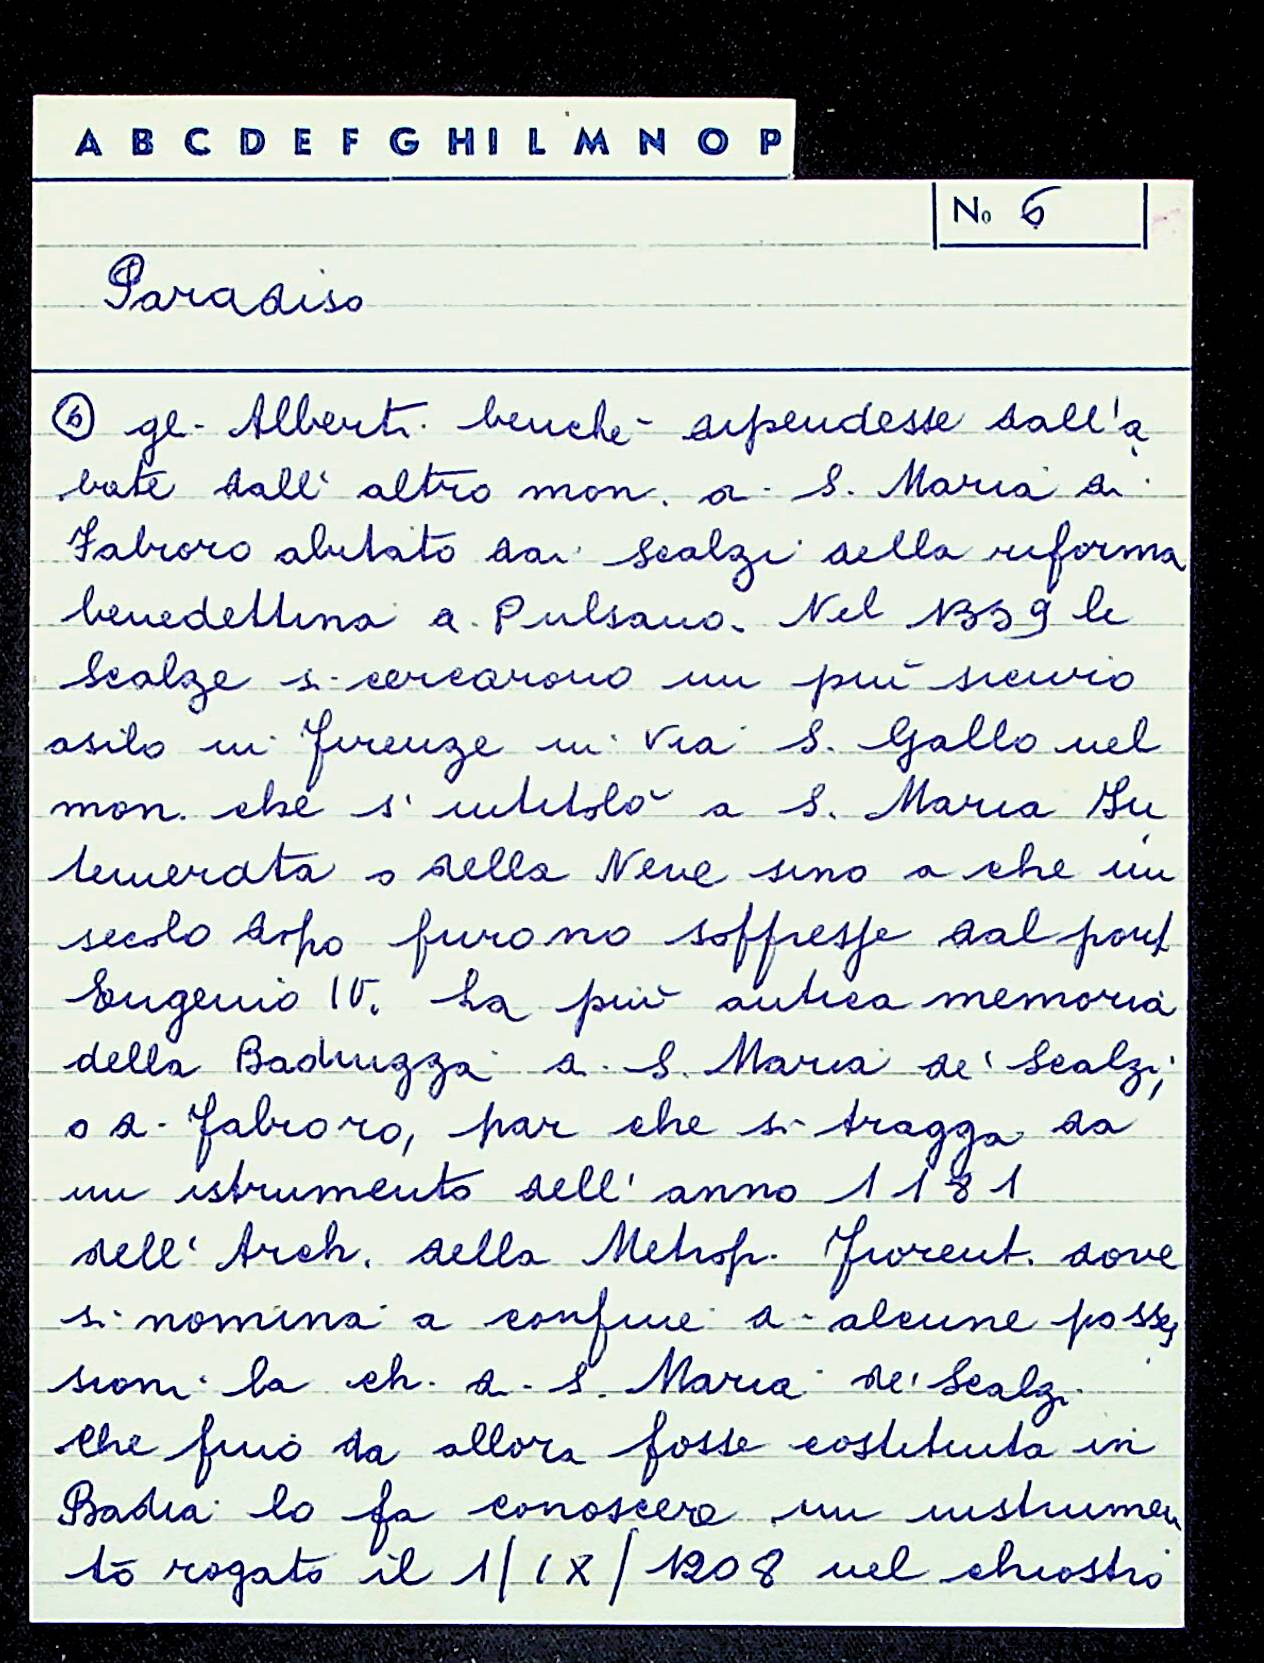 A B C D E F G H I L M N O P
No 6
Paradiso
⑥ gl. Alberti. benchè dipendesse dall'a
bate dall' altro mon. di S. Maria di
Fabroro abitato dai Scalzi della riforma
benedettina di Pulsano. Nel 1339 le
Scalze si cercarono un più sicuro
asilo in Firenze in Via S. Gallo nel
mon. che s' intitolò a S. Maria In
temerata o della Neve sino a che un
secolo dopo furono soffresse dal pont
Eugenio IV. La più antica memoria
della Badiuzza di S. Maria de' Scalzi,
o di Fabroro, par che si tragga da
un istrumento dell' anno 1181
dell' Arch. della Metrop. Fiorent. dove
si nomina a confine di alcune posses
sioni la ch. di S. Maria de' Scalzi.
Che fino da allora fosse costituita in
Badia lo fa conoscere un instrumen
to rogato il 1/IX/1208 nel chiostro